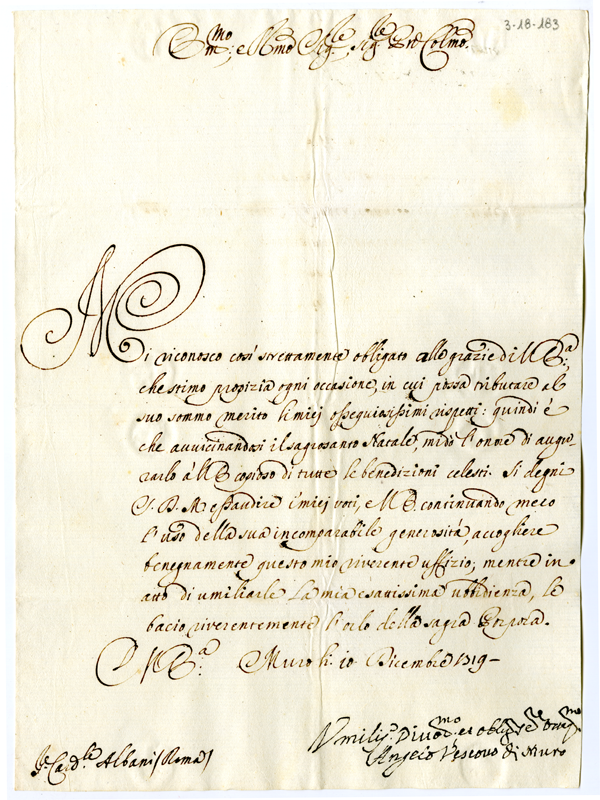 3-18-183
Em.mo e R.mo Sig.re Sig.re P.rone Col.mo
Mi riconosco così strettamente obligato alle grazie di V. E.a
che stimo propizia ogni occasione, in cui possa tributare al
suo sommo merito li miej ossequiosissimi rispetti: quindi è
che avvicinandosi il sagrosanto Natale, mi dò l'onore di augu-
rarlo à V. E. copioso di tutte le benedizioni celesti. Si degni
S. D. M. essaudire i miej voti, e V. E. continuando meco
l'uso della sua incomparabile generosità accogliere
benegnamente questo mio riverente uffizio; mentre in
atto di umiliarle la mia esattissima ubbidienza, le
bacio riverentemente l'orlo della sagra Porpora.
D V. E.a Muro li 10 Dicembre 1719
Umiliss.o Divot.mo et oblig.
Angelo Vescovo di Muro
Sr. Card.le Albani (Roma)